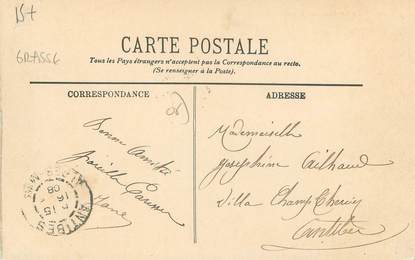 15+
GRASSE
CARTE POSTALE
Tous les Pays étrangers n'acceptent pas la Correspondance au recto.
(Se renseigner à la Poste)
CORRESPONDANCE
06
Bonne Amitié
Jane
ANTIBES
5-15
16
08
ADRESSE
Mademoiselle
Joséphine Ailhaud
Villa Champ Cherix
Antibes